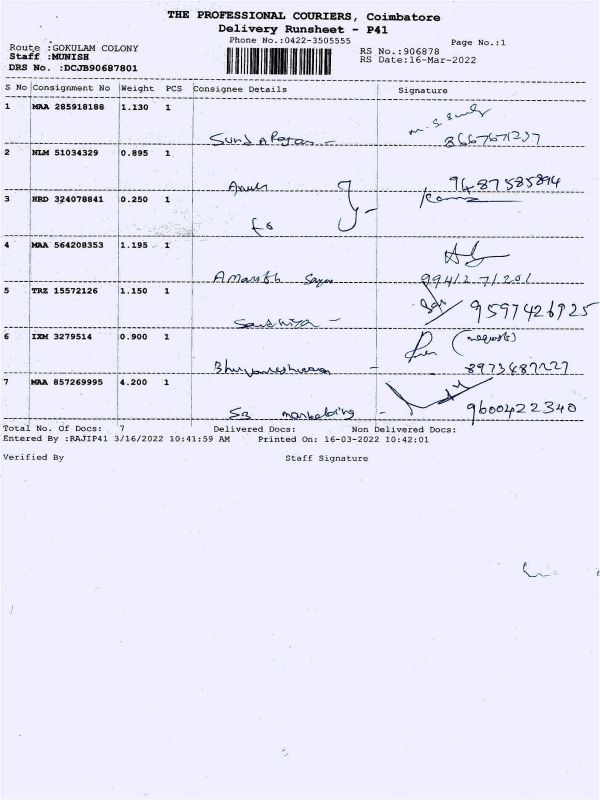 THE PROFESSIONAL COURIERS, Coimbatore
Delivery Runsheet - P41
Phone No.:0422-3505555
Page No.:1
Route :GOKULAM COLONY
RS No.:906878
Staff :MUNISH
RS Date:16-Mar-2022
DRS No. :DCJB90687801
S No Consignment No Weight PCS Consignee Details Signature
1 MAA 285918188 1.130 1
2 NLM 51034329 0.895 1
3 HRD 324078841 0.250 1
4 MAA 564208353 1.195 1
5 TRZ 15572126 1.150 1
9597426925
6 IXM 3279514 0.900 1
7 MAA 857269995 4.200 1
marketing - 9600422340
Total No. Of Docs: 7 Delivered Docs: Non Delivered Docs:
Entered By :RAJIP41 3/16/2022 10:41:59 AM Printed On: 16-03-2022 10:42:01
Verified By Staff Signature